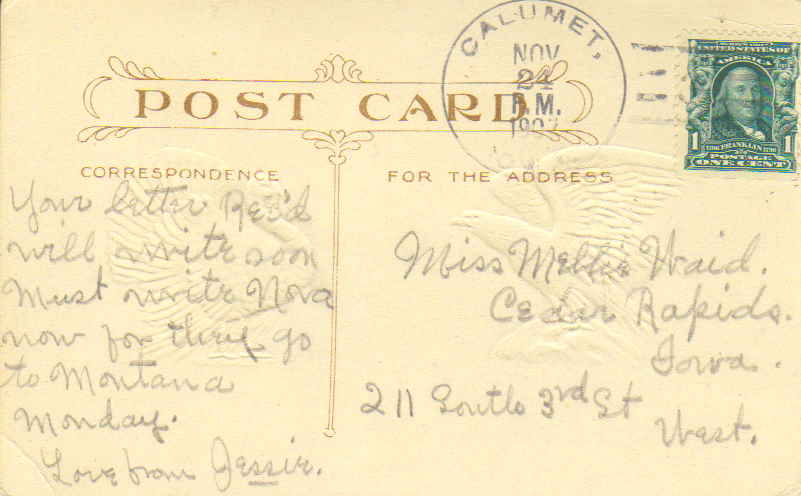 POST CARD
CALUMET,
NOV
24
P.M.
1907
UNITED STATES OF
AMERICA
1 FRANKLIN 1
POSTAGE
ONE CENT
CORRESPONDENCE
Your letter Rec'd
will write soon
Must write Nova
now for they go
to Montana
Monday.
Love from Jessie.
FOR THE ADDRESS
Miss Mellie Waid.
Cedar Rapids.
Iowa.
211 South 3rd St
West.